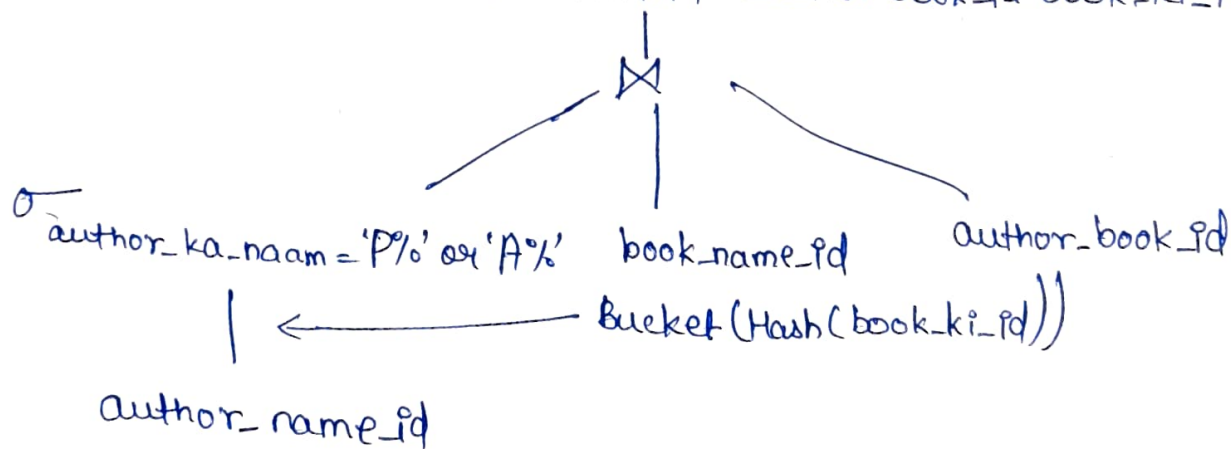 ⋈
σ author_ka_naam = 'P%' or 'A%' book_name_id author_book_id
Bucket (Hash (book_ki_id))
author_name_id